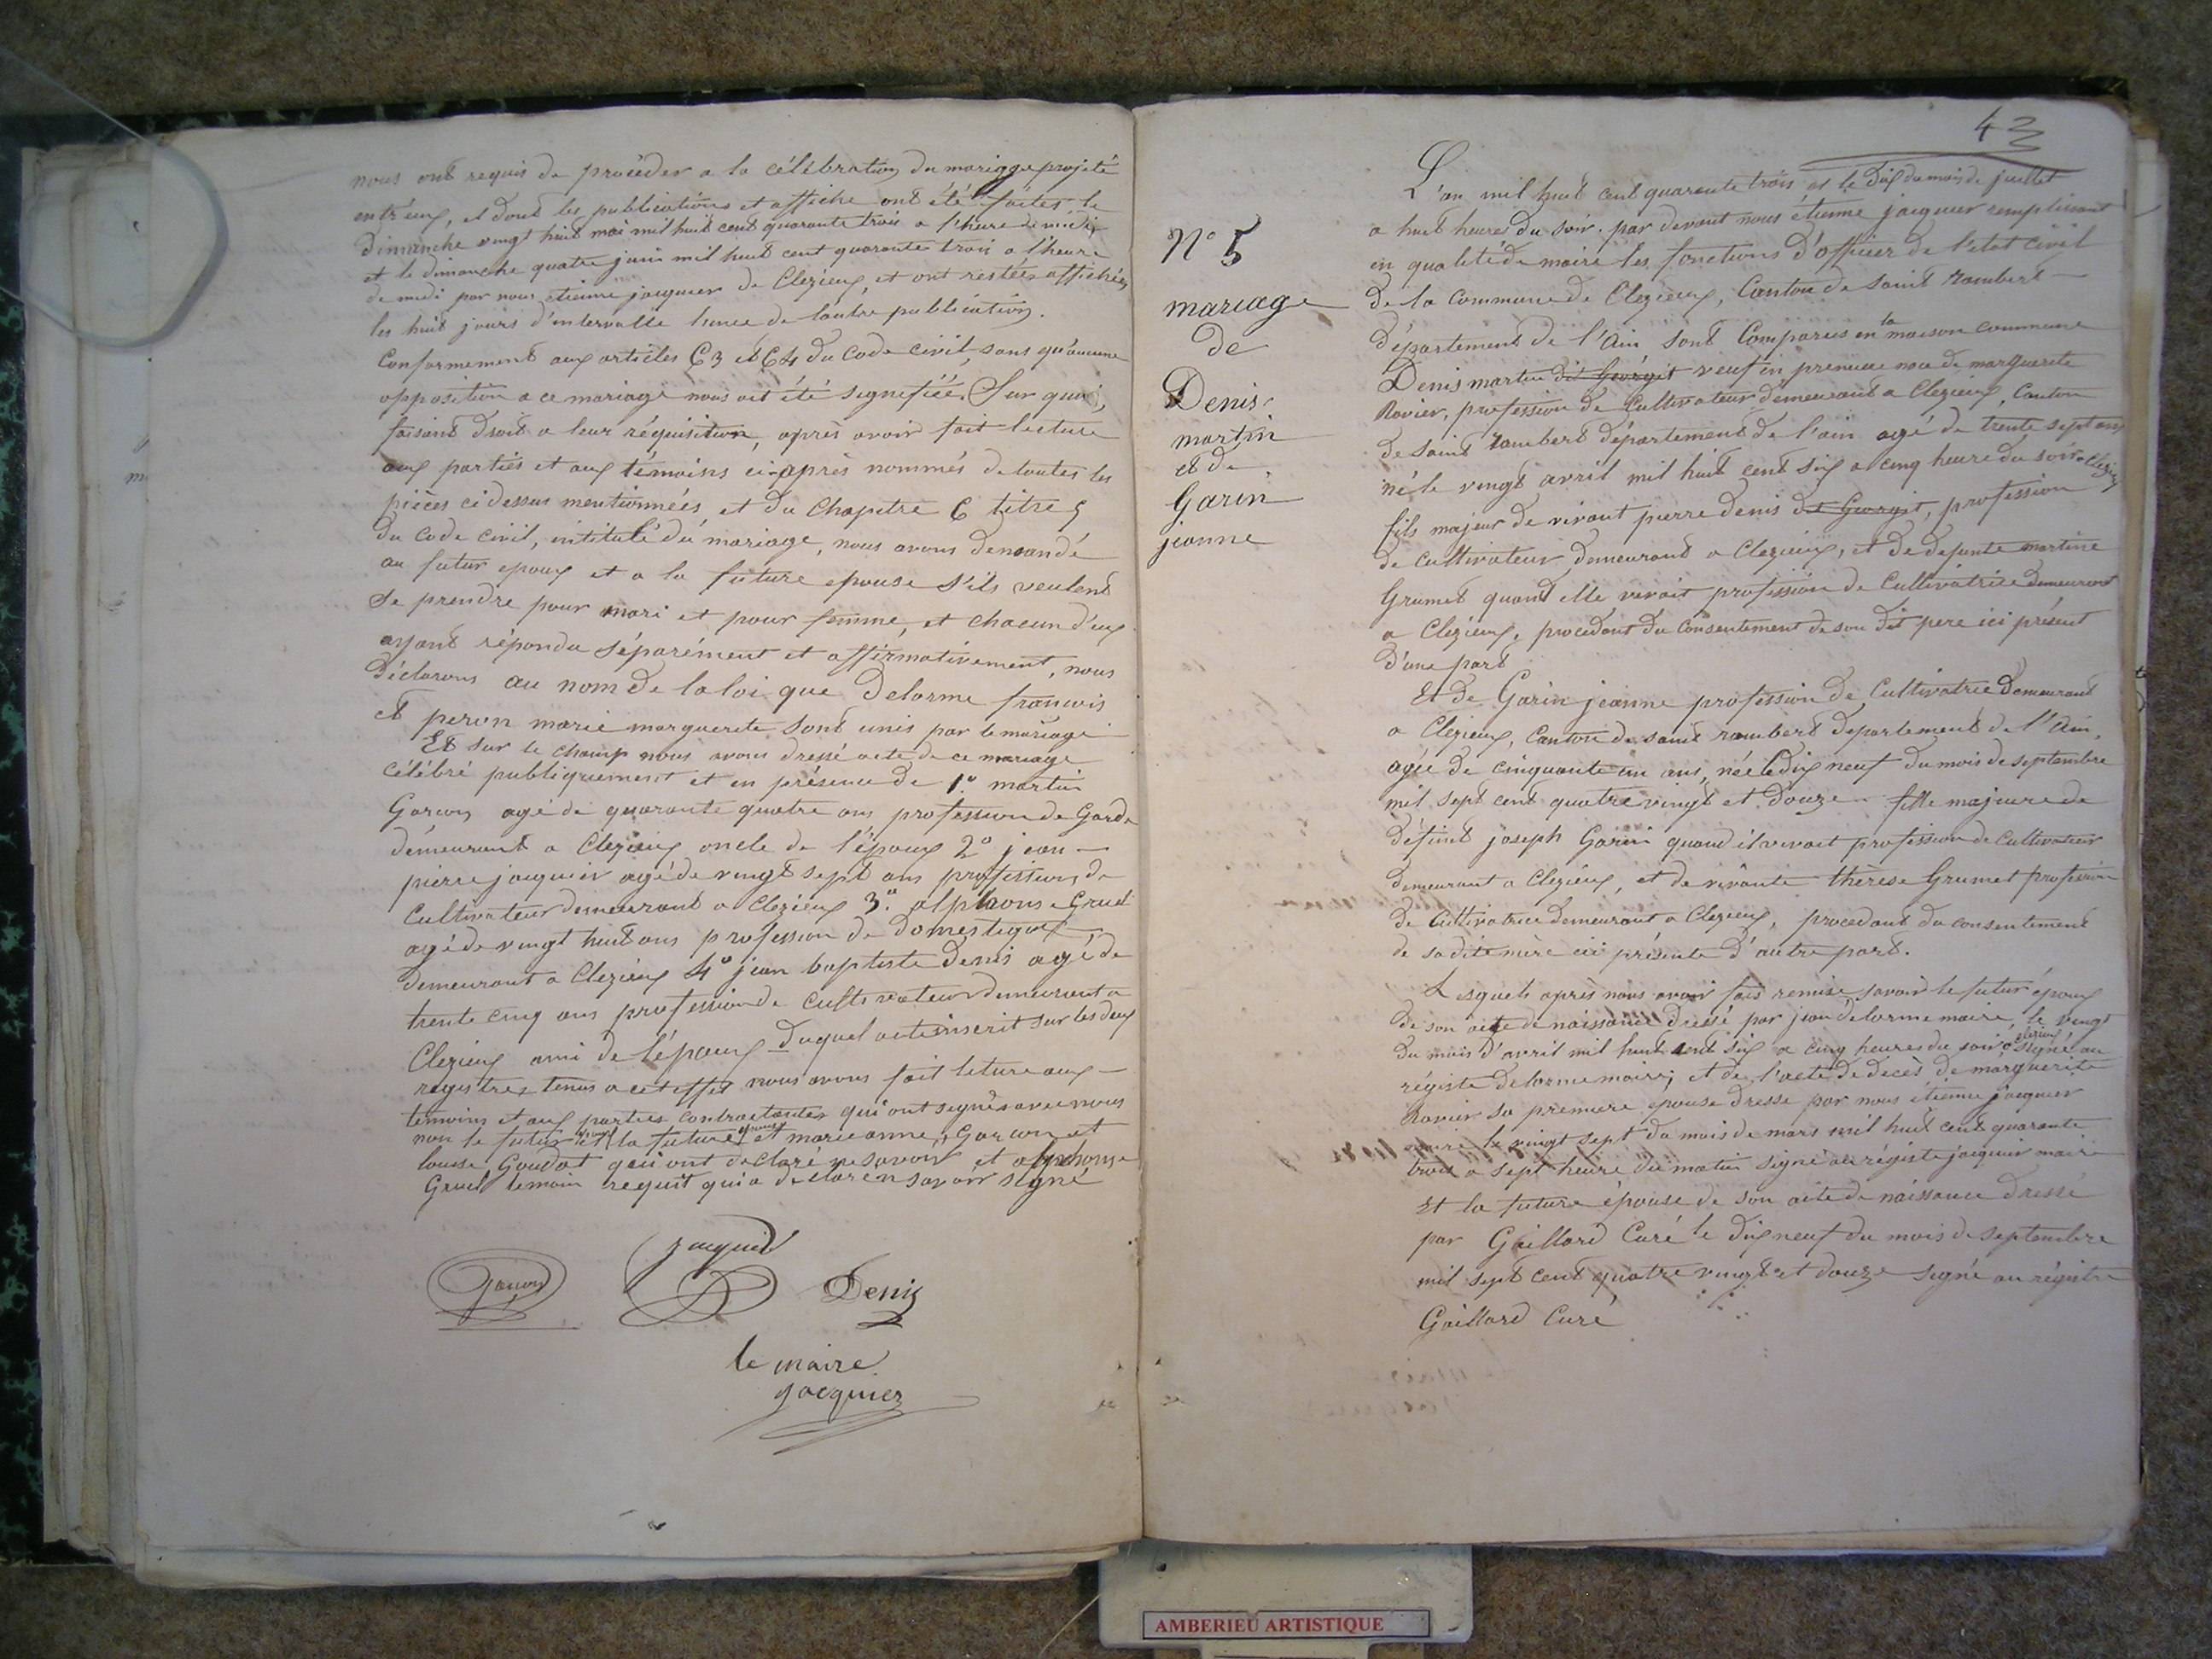 nous ont requis de procéder a la célébration du mariage projeté
entr'eux, et dont les publications et affiche ont été faites le
dimanche vingt huit mai mil huit cent quarante trois a l'heure de midi,
et le dimanche quatre juin mil huit cent quarante trois a l'heure
de midi par nous etienne jacquier de Clezieux, et ont restées affichées
les huit jours d'intervalle l'une de l'autre publication.
Conformement aux articles 63 et 64 du Code civil, sans qu'aucune
opposition a ce mariage nous ait été signefiéé. Sur quoi,
faisant droit a leur réquisition, après avoir fait lecture
aux partiés et aux témoins ci-après nommés de toutes les
pièces ci dessus mentionnéés et du Chapitre 6 titre 5
du Code civil, intitulé du mariage, nous avons demandé
au futur epoux et a la future epouse s'ils veulent
se prendre pour mari et pour femme, et chacun d'eux
ayant répondu séparément et affirmativement, nous
déclarons au nom de la loi que Delorme francois
et peron marie marguerite sont unis par le mariage
Et sur le champ nous avons dressé acte de ce mariage
célébré publiquement et en présence de 1° martin
Garcon agé de quarante quatre ans profession de Garde
demeurant a Clezieux oncle de l'époux 2° jean
pierre jacquier agé de vingt sept ans profession de
Cultivateur demeurant a Clezieux 3° alphonse Gruel
agé de vingt huit ans profession de domestique
demeurant a Clezieux 4° jean baptiste Denis agé de
trente cinq ans profession de cultivateur demeurant a
Clezieux ami de l'époux Duquel acte inscrit sur les deux
registres tenus a cet effet nous avons fait leture aux
temoins et aux parties contractantes qui ont signés avec nous
non le futur epoux et la future epouse et marie anne Garcon et
louise Goudot qui ont declaré ne savoir et alphonse
Gruel temoin requit qui a déclaré n savoir signé
Garcon
jacquier
Denis
le maire
jacquier
43
N° 5
mariage
de
Denis
martin
et de
Garin
jeanne
L'an mil huit cent quarante trois et le dix du mois de juillet
a huit heures du soir. par devant nous étienne jacquier remplissant
en qualité de maire les fonctions d'officier de l'etat civil
de la Commune de Clezieux, Canton de saint rambert
département de l'ain sont Comparus en la maison commune
Denis martin dit Georgit veuf en premiere noce de marguerite
Ravier, profession de Cultivateur demeurant a Clezieux, Canton
de saint rambert département de l'ain agé de trente sept ans
né le vingt avril mil huit cent six a cinq heure du soir a Clezieux
fils majeur de vivant pierre denis dit Georgit, profession
de Cultivateur demeurant a Clezieux, et de defunte martine
Grumet quand elle vivait profession de Cultivatrice demeurant
a Clezieux, procédant du Consentement de son dit pere ici présent
d'une part
Et de Garin jeanne profession de Cultivatrice demeurant
a Clezieux, Canton de saint rambert departement de l'ain,
agée de cinquante un ans, née le dix neuf du mois de septembre
mil sept cent quatre vingt et douze fille majeure de
défunt joseph Garin quand il vivait profession de cultivateur
demeurant a Clezieux, et de vivante thérèse Grumet profession
de Cultivatrice demeurant a Clezieux, procedant du consentement
de sadite mère ici présente d'autre part.
Lesquels après nous avoir fais remise savoir le futur époux
de son acte de naissance dressé par jean delorme maire, le vingt
du mois d'avril mil huit cent six a cinq heures du soir a clezieux signé au
régiste delorme maire, et de l'acte de decès de marguerite
Ravier sa premiere epouse dresse par nous étienne jacquier
maire le vingt sept du mois de mars mil huit cent quarante
trois a sept heure du matin signé au régiste jacquier maire
Et la future épouse de son acte de naissance dressé
par Gaillard Curé le dix neuf du mois de septembre
mil sept cent quatre vingt et douze signé au régistre
Gaillard Curé
AMBERIEU ARTISTIQUE